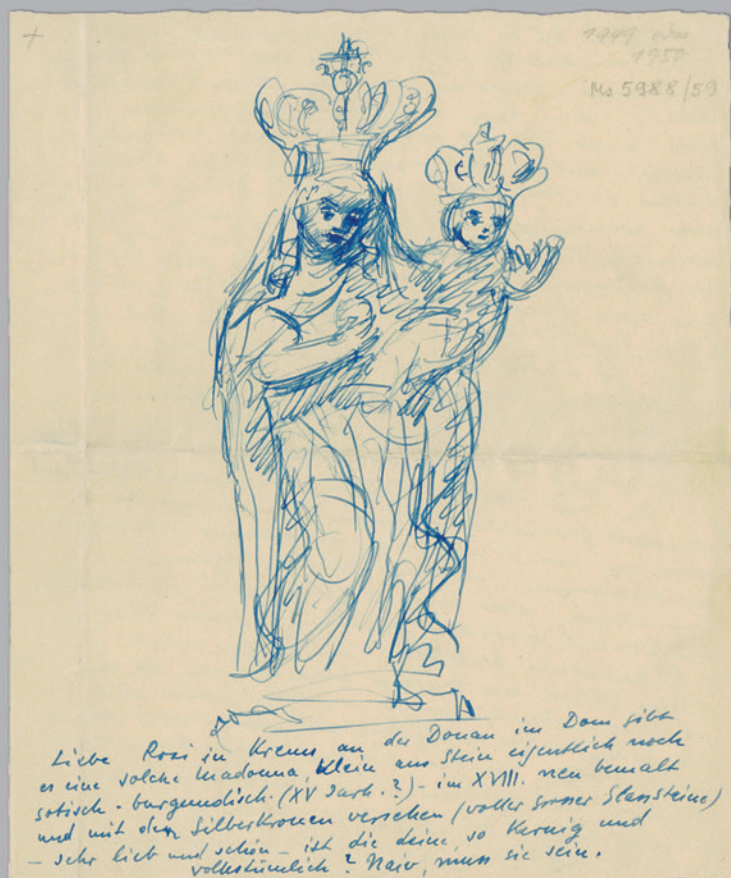 +
1949 oder
1950
Ms 5988/59
Liebe Rosi in Krems an der Donau im Dom gibt
es eine solche Madonna, klein aus Stein eigentlich noch
gotisch-burgundisch. (XV Jarh.?) - im XVIII. neu bemalt
und mit den Silberkronen versehen (voller grosser Glassteine)
- sehr lieb und schön - ist die deine so kernig und
volkstümlich? Naiv, muss sie sein.